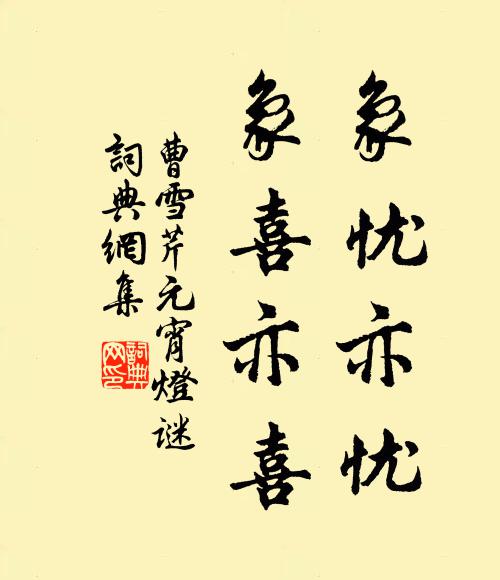 象忧亦忧
象喜亦喜
曹雪芹元宵燈谜
詞典網集
詞典网印